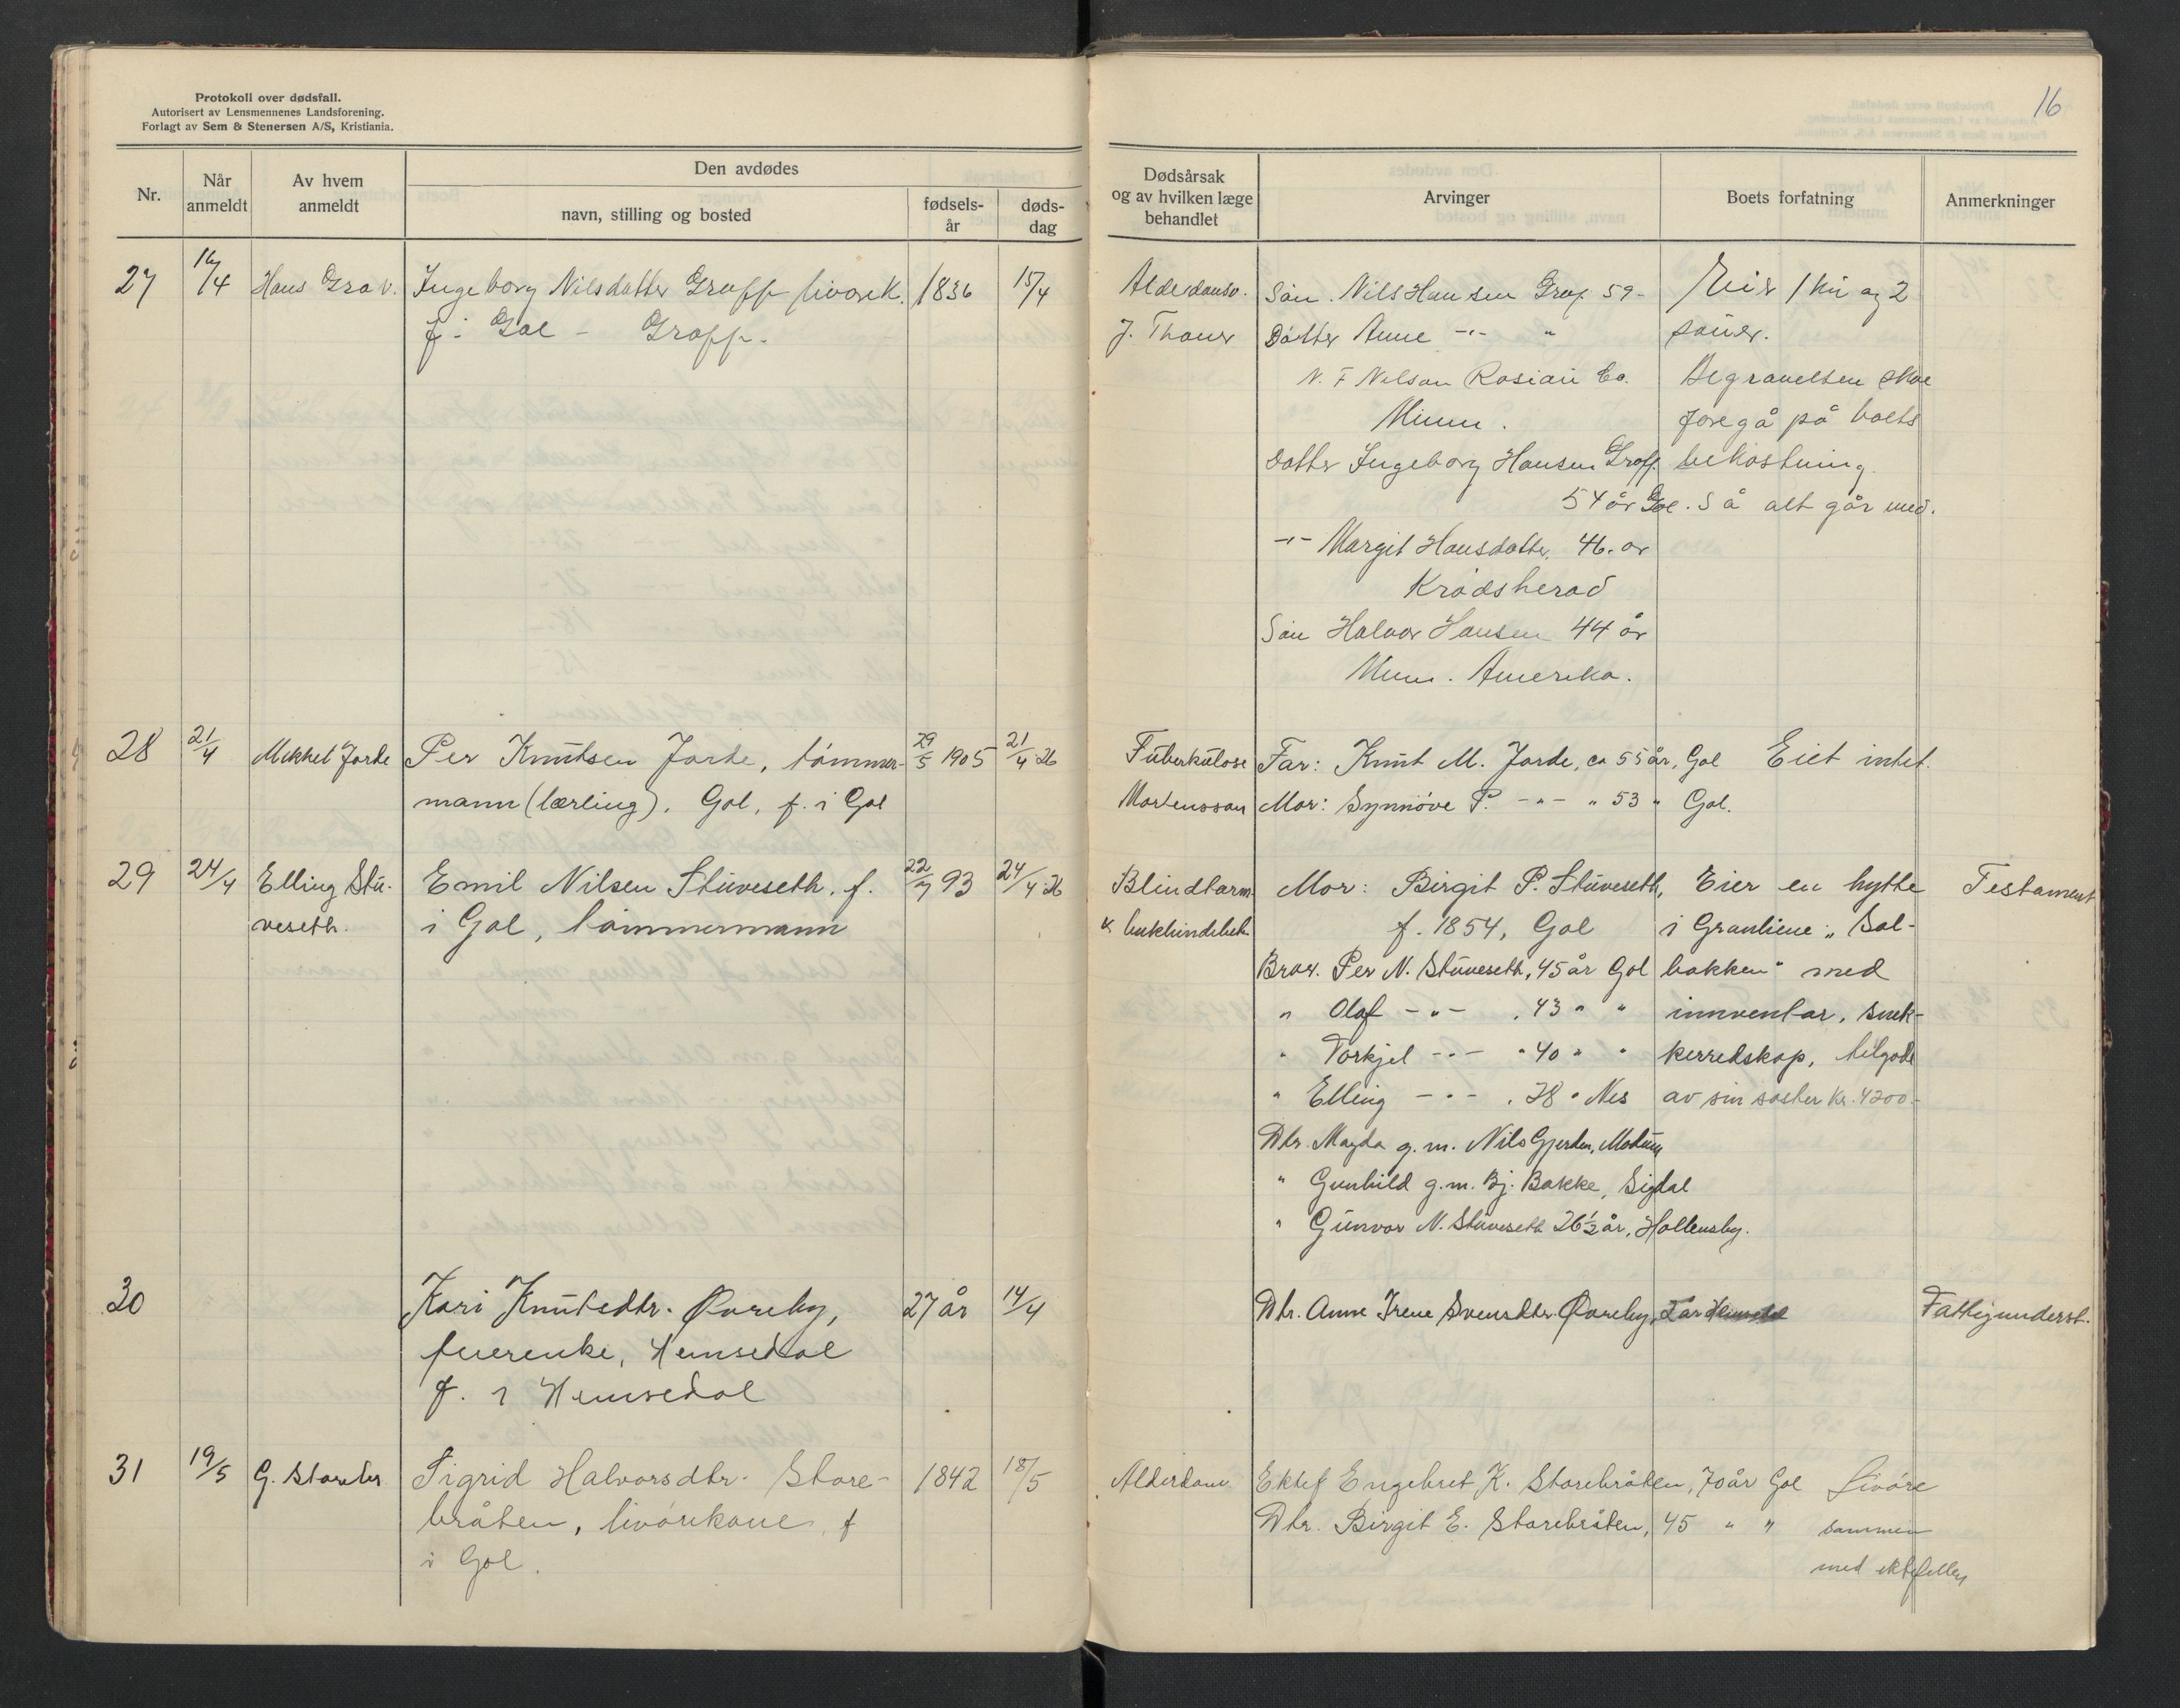 Protokoll over dødsfall.
Autorisert av Lensmennenes Landsforening.
Forlagt av Sem & Stenersen A/S, Kristiania.
Nr.
Når anmeldt
Av hvem anmeldt
Den avdødes
navn, stilling og bosted
fødsels-år
døds-dag
27 16/4 Hans Grøv. Ingeborg Nilsdatter Grøff livørk. 1836 15/4
f. i Gol - Grøff.
28 21/4 Mikkel Jorde Per Knutsen Jorde, tømmer- 29/5 1905 21/4 26
mann (lærling). Gol, f. i Gol
29 24/4 Elling Stu- Emil Nilsen Stuveseth. f. 22/7 93 24/4 26
veseth. i Gol, tømmermann
30 Kari Knutsdtr. Øvreby, 27 år 14/4
Hemsedal
f. i Hemsedal
31 19/5 G. Storebr Sigrid Halvorsdtr. Store- 1842 18/5
bråten, livørekone, f
i Gol.
16
Dødsårsak og av hvilken læge behandlet
Arvinger
Boets forfatning
Anmerkninger
Alderdomsv. Søn Nils Hansen Grøf 59- Eier 1 ku og 2
J. Thoner Datter Anne -"- " sauer.
N. F Nelson Rosiau Co. Begravelsen skal
Minn. foregå på boets
Datter Ingeborg Hansen Grøff. bekostning.
54 år Gol. Så alt går med.
-"- Margit Hansdatter. 46. år
Krødsherad
Søn Halvor Hansen 44 år
Minn. Amerika.
Tuberkulose Far: Knut M. Jorde, ca 55 år, Gol Eiet intet.
Mortensson Mor: Synnøve P. -"- " 53 " Gol.
Blindtarm Mor: Birgit P. Stuveseth, Eier en hytte Testament
& bukhindebet. f. 1854, Gol i Granliene "Sol-
Bror. Per N. Stuveseth, 45 år Gol bakken" med
" Olaf -"- , 43 " " innventar, snek-
" Torkjel -"- " 40 " " kerredskap, tilgode
" Elling -"- , 38 " Nes av sin søster kr. 4200.-
Dtr. Magda g.m. Nils Gjerden, Modum
" Gunhild g.m. Bj. Bakke, Sigdal
" Gunvor N. Stuveseth 26½ år, Hollensby.
Dtr. Anne Irene Svensdtr. Øvreby, 2 år Fattigunderst.
Alderdom Ektef Engebret K. Storebråten, 70 år Gol Livøre
Dtr. Birgit E. Storebråten, 45 " " sammen
med ektefellen